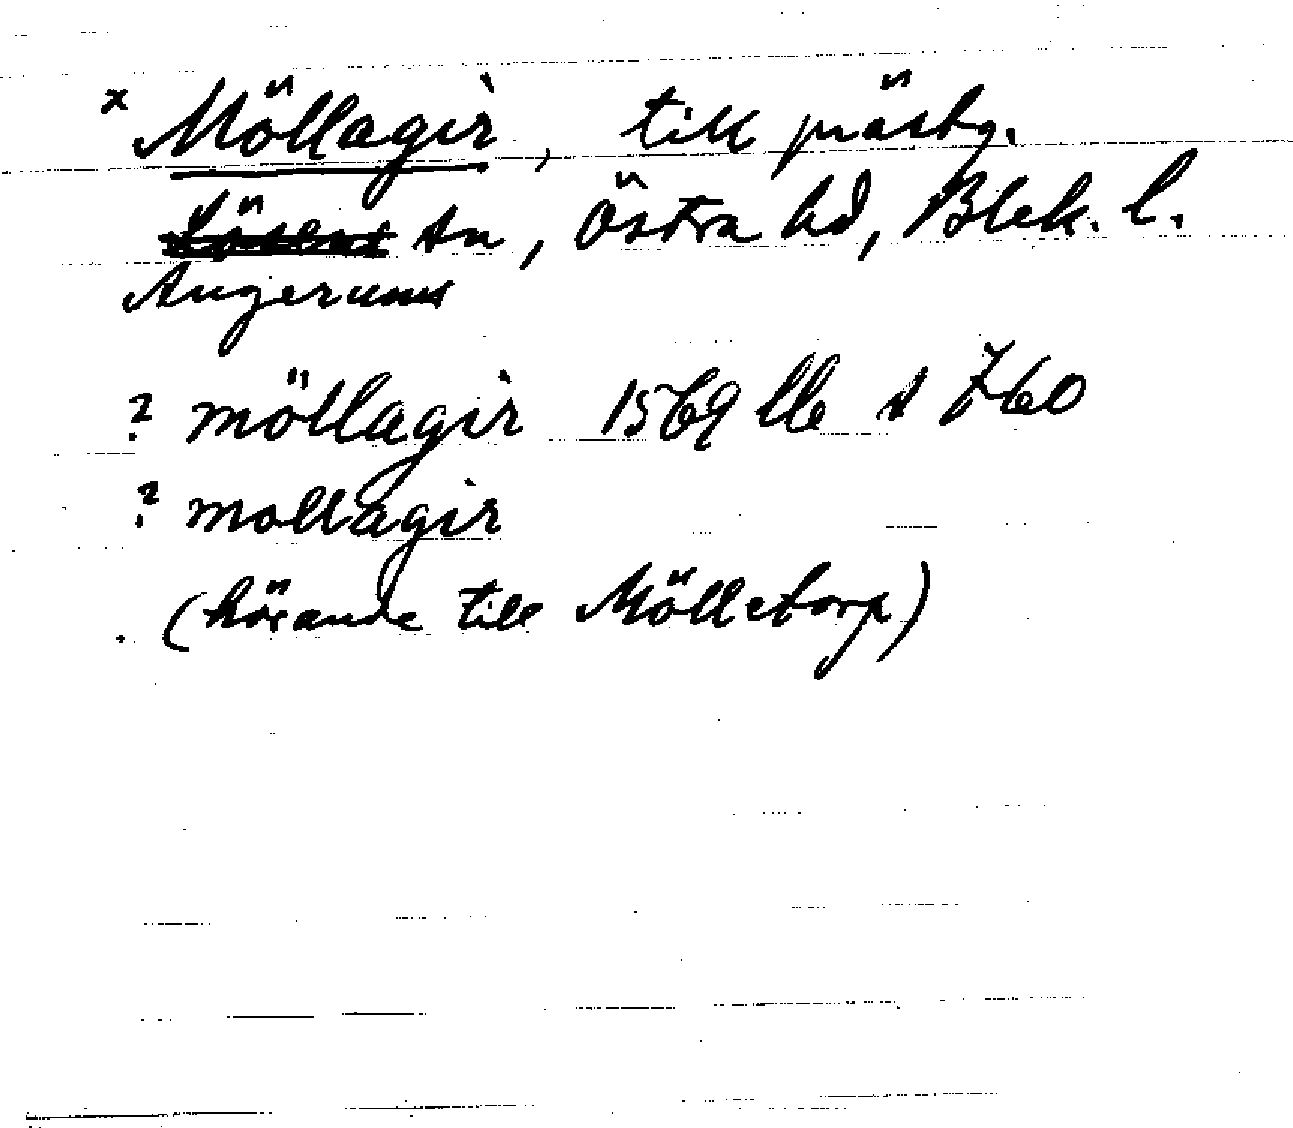 x Möllagir, till prästg.
Lösens sn, Östra hd, Blek. l.
Augerums
? möllagir 1569 llb s 760
? mollagir
(hörande till Mölletorp)